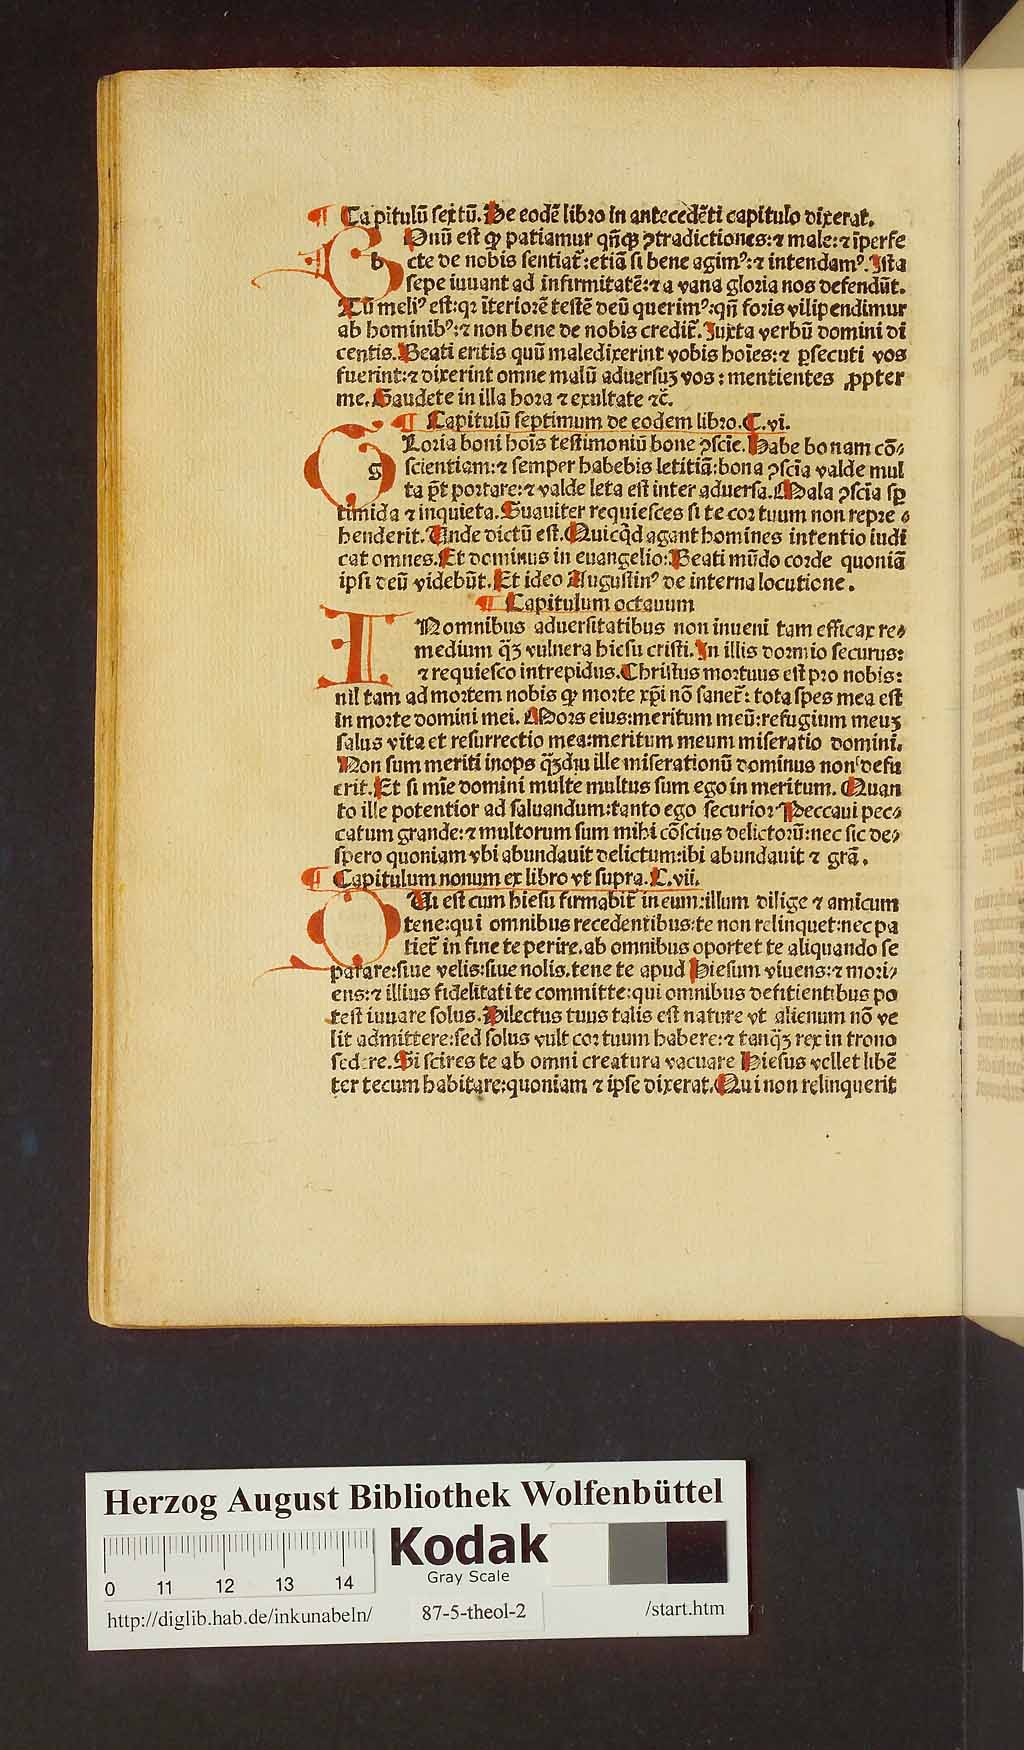 ¶ Capitulū sextū. De eodē libro in antecedēti capitulo dixerat.
BOnū est ꝙ patiamur qn̄qꝫ ꝯtradictiones: ⁊ male: ⁊ īperfe
cte de nobis sentiat̄: etiā si bene agimꝰ: ⁊ intendamꝰ. Ista
sepe iuuant ad infirmitatē: ⁊ a vana gloria nos defendūt.
Tū meliꝰ est: qꝛ īteriorē testē deū querimꝰ: qn̄ foris vilipendimur
ab hominibꝰ: ⁊ non bene de nobis credit̄. Iuxta verbū domini di
centis. Beati eritis quū maledixerint vobis hoīes: ⁊ ꝑsecuti vos
fuerint: ⁊ dixerint omne malū aduersuꝫ vos: mentientes ꝓpter
me. Gaudete in illa hora ⁊ exultate ⁊c̄.
¶ Capitulū septimum de eodem libro. C. vi.
GLoria boni hoīs testimoniū bone ꝯscīe. Habe bonam cō-
scientiam: ⁊ semper habebis letitiā: bona ꝯscīa valde mul
ta p̄t portare: ⁊ valde leta est inter aduersa. Mala ꝯscīa sꝑ
timida ⁊ inquieta. Suauiter requiesces si te cor tuum non repre-
henderit. Unde dictū est. Quicq̄d agant homines intentio iudi
cat omnes. Et dominus in euangelio: Beati mūdo corde quoniā
ipsi deū videbūt. Et ideo Augustinꝰ de interna locutione.
¶ Capitulum octauum
INomnibus aduersitatibus non inueni tam efficax re-
medium q̄ꝫ vulnera hiesu cristi. In illis dormio securus:
⁊ requiesco intrepidus. Christus mortuus est pro nobis:
nil tam ad mortem nobis ꝙ morte xp̄i nō sanet̄: tota spes mea est
in morte domini mei. Mors eius: meritum meū: refugium meuꝫ
salus vita et resurrectio mea: meritum meum miseratio domini.
Non sum meriti inops q̄ꝫdiu ille miserationū dominus non defu
erit. Et si mīe domini multe multus sum ego in meritum. Quan
to ille potentior ad saluandum: tanto ego securior Peccaui pec-
catum grande: ⁊ multorum sum mihi cōscius delictorū: nec sic de-
spero quoniam vbi abundauit delictum: ibi abundauit ⁊ grā.
¶ Capitulum nonum ex libro vt supra. C. vii.
QUi est cum hiesu firmabit̄ in eum: illum dilige ⁊ amicum
tene: qui omnibus recedentibus: te non relinquet: nec pa
tiet̄ in fine te perire. ab omnibus oportet te aliquando se
parare: siue velis: siue nolis. tene te apud Hiesum viuens: ⁊ mori-
ens: ⁊ illius fidelitati te committe: qui omnibus defitientibus po
test iuuare solus. Dilectus tuus talis est nature vt alienum nō ve
lit admittere: sed solus vult cor tuum habere: ⁊ tanq̄ꝫ rex in trono
sedere. Si scires te ab omni creatura vacuare Hiesus vellet libē
ter tecum habitare: quoniam ⁊ ipse dixerat. Qui non relinquerit
Herzog August Bibliothek Wolfenbüttel
Kodak
Gray Scale
0 11 12 13 14
http://diglib.hab.de/inkunabeln/ 87-5-theol-2 /start.htm